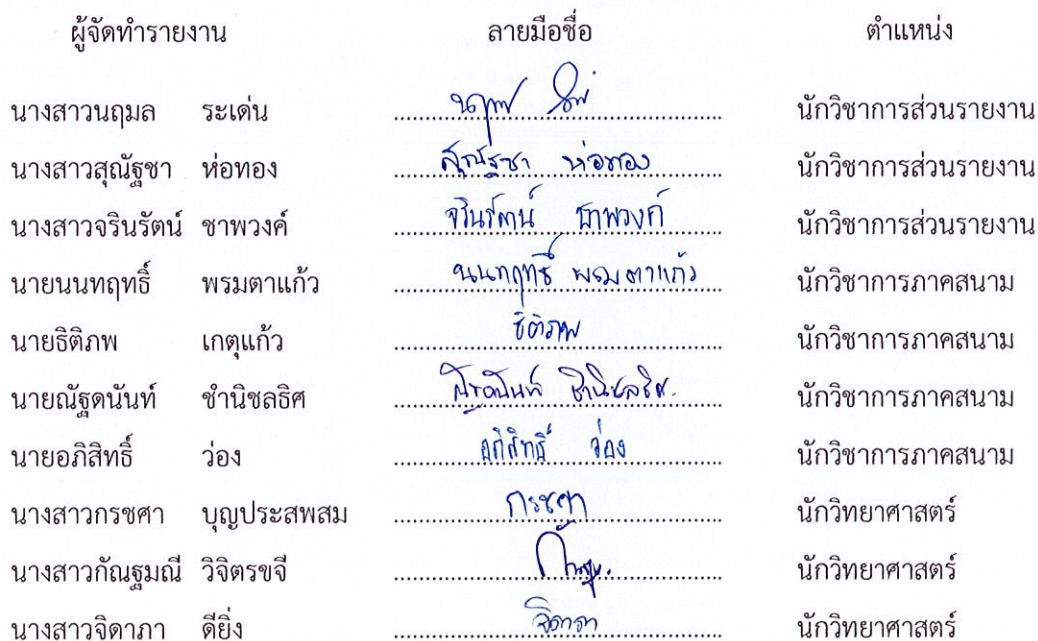 ผู้จัดทำรายงาน ลายมือชื่อ ตำแหน่ง
นางสาวนฤมล ระเด่น นฤมล นักวิชาการส่วนรายงาน
นางสาวสุณัฐชา ห่อทอง สุณัฐชา ห่อทอง นักวิชาการส่วนรายงาน
นางสาวจรินรัตน์ ชาพวงค์ จรินรัตน์ ชาพวงค์ นักวิชาการส่วนรายงาน
นายนนทฤทธิ์ พรมตาแก้ว นนทฤทธิ์ พรมตาแก้ว นักวิชาการภาคสนาม
นายธิติภพ เกตุแก้ว ธิติภพ นักวิชาการภาคสนาม
นายณัฐดนันท์ ชำนิชลธิศ ณัฐดนันท์ ชำนิชลธิศ. นักวิชาการภาคสนาม
นายอภิสิทธิ์ ว่อง อภิสิทธิ์ ว่อง นักวิชาการภาคสนาม
นางสาวกรชศา บุญประสพสม กรชศา นักวิทยาศาสตร์
นางสาวกัณฐมณี วิจิตรขจี นักวิทยาศาสตร์
นางสาวจิดาภา ดียิ่ง จิดาภา นักวิทยาศาสตร์